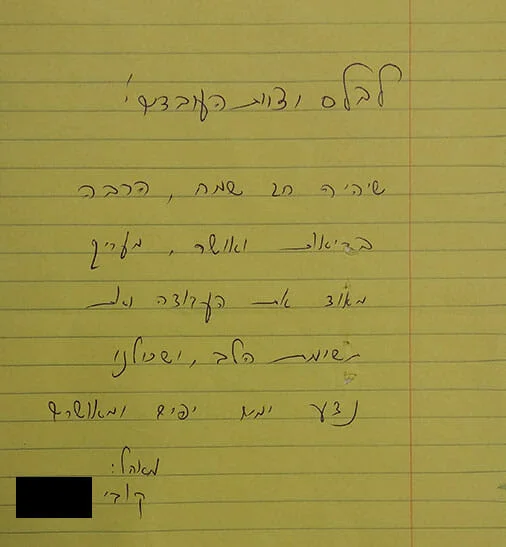 לכולם וצוות העובדים,
שיהיה חג שמח, הרבה
בריאות ואושר, מעריך
מאוד את העבודה ואת
תשומת הלב, ושכולנו
נדע ימים יפים ומאושרים
מאהל:
קובי